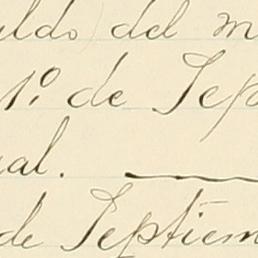 ldo del m
1º de Sep
ual.
de Septiem